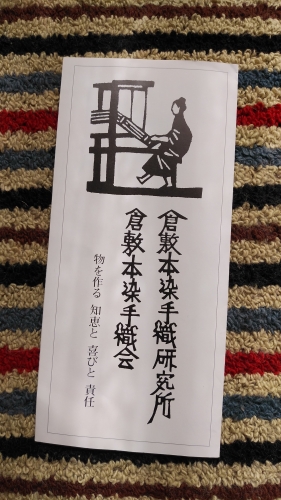 倉敷本染手織研究所
倉敷本染手織会
物を作る 知恵と 喜びと 責任